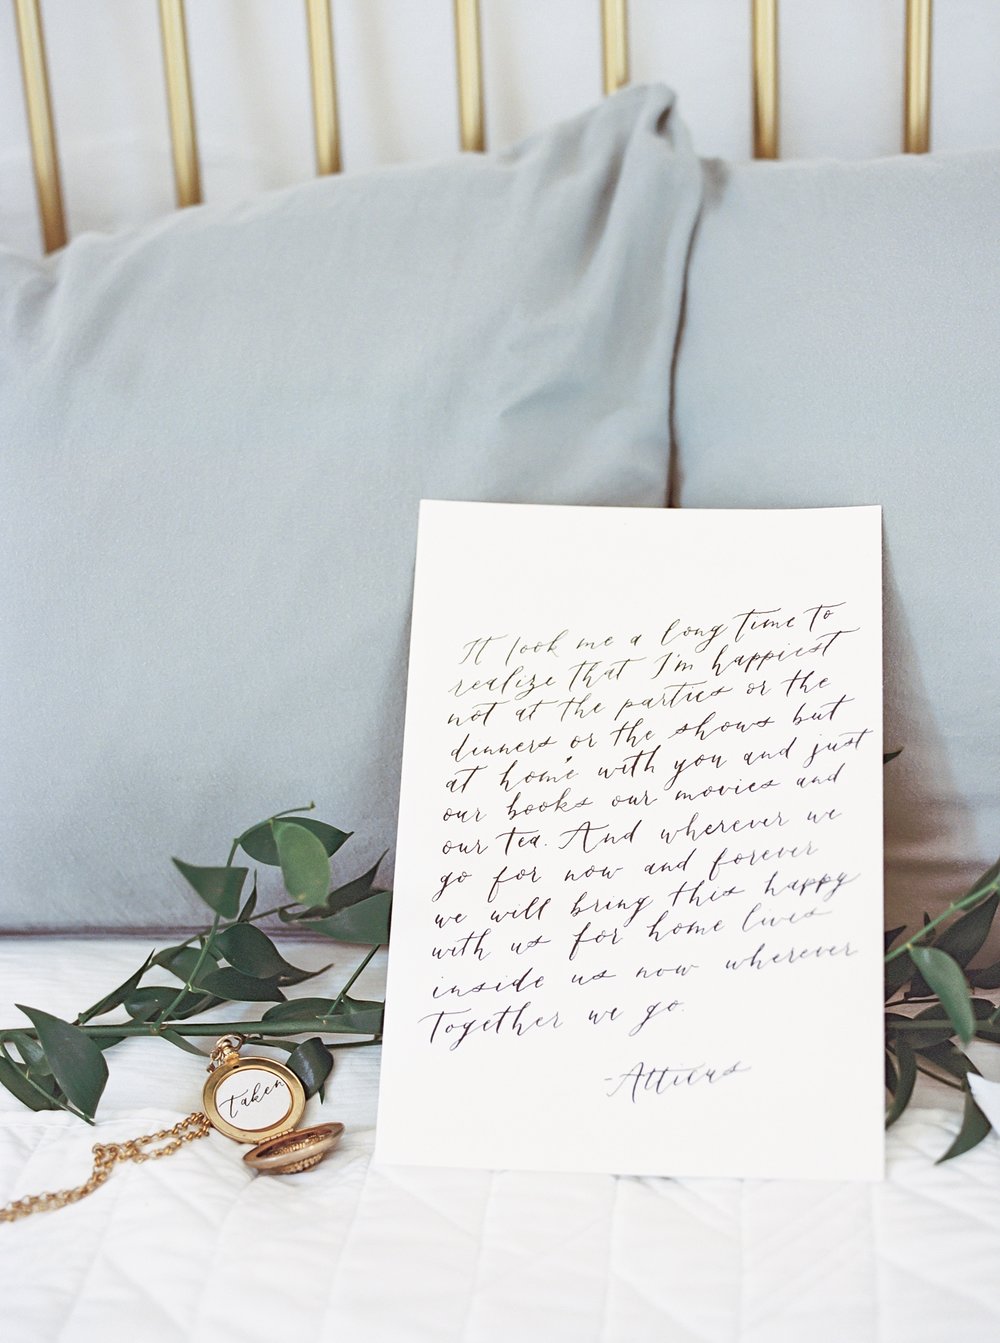 It took me a long time to
realize that I'm happiest
not at the parties or the
dinners or the shows but
at home with you and just
our books our movies and
our tea. And wherever we
go for now and forever
we will bring this happy
with us for home lives
inside us now wherever
Together we go.
-Atticus
taken